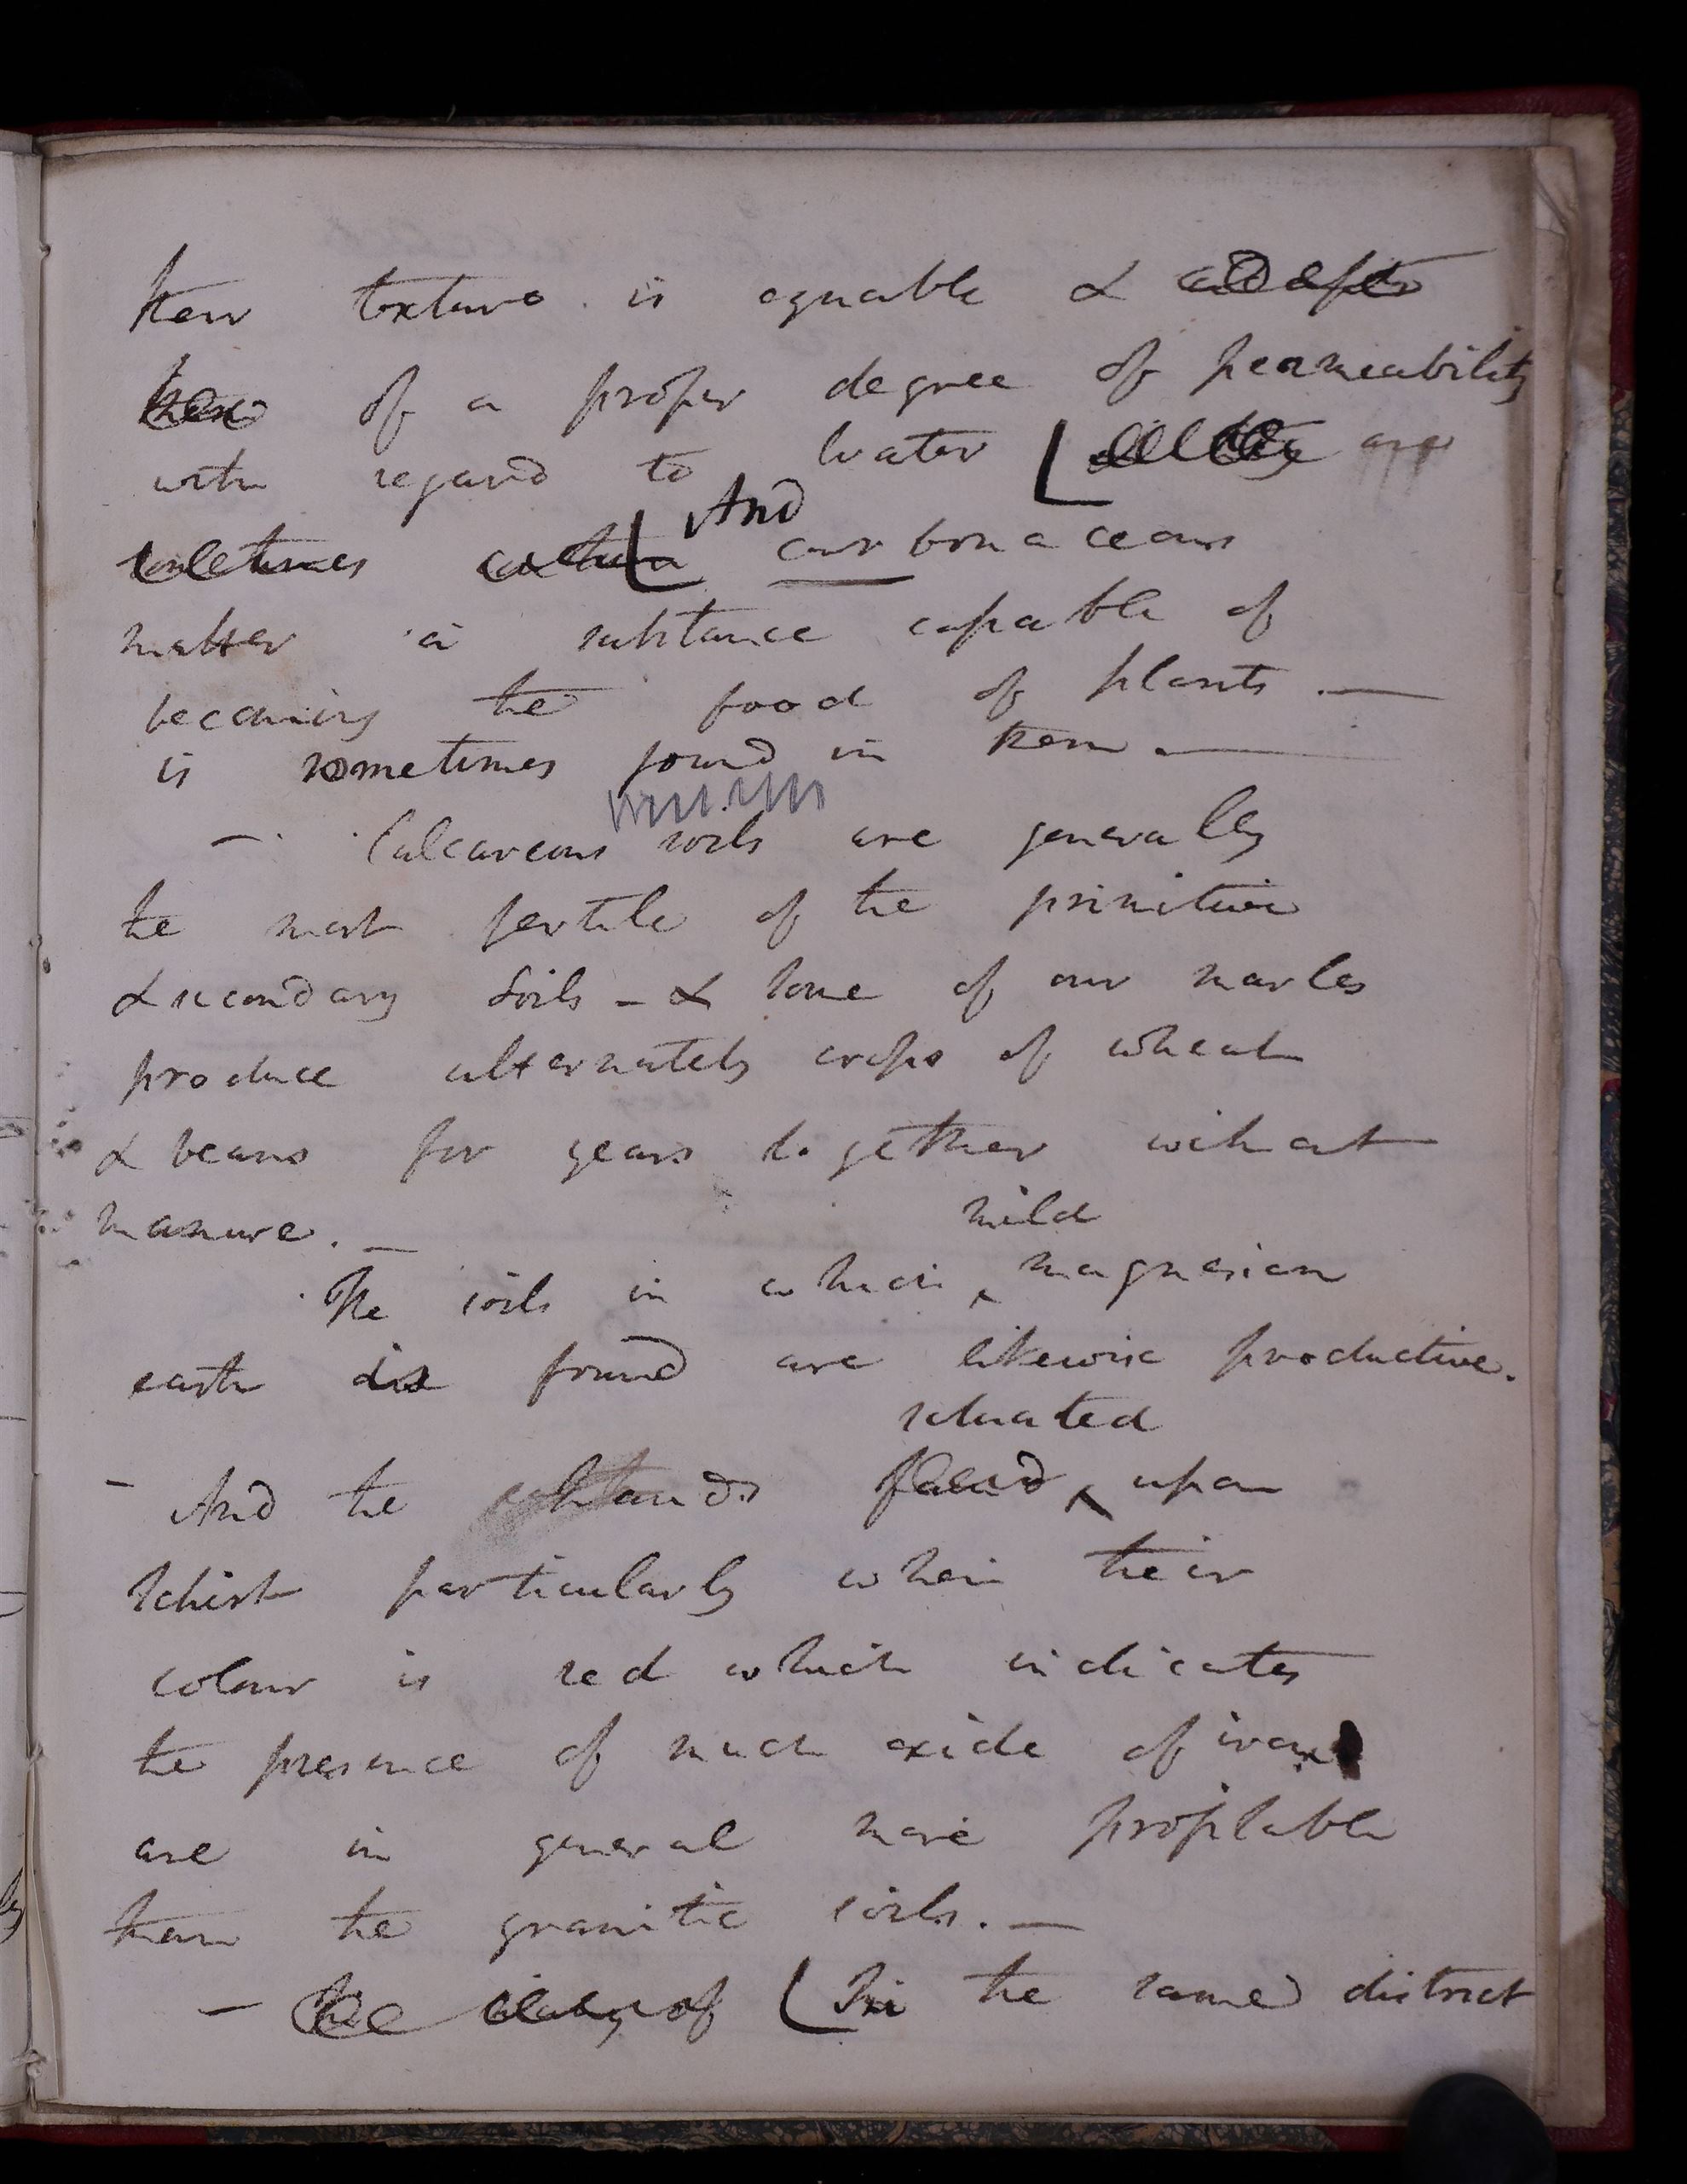 their texture is equable &
of a proper degree of permeability
with regard to water
And
sometimes carbonaceous
matter a substance capable of
becoming the food of plants. —
is sometimes found in them —
— Calcareous soils are generally
the most fertile of the primitive
& secondary soils - & some of our marles
produce alternately crops of wheat
& beans for years together without
manure. —
mild
The soils in which ^ magnesian
earth is found are likewise productive.
situated
- And the found ^ upon
Schist particularly when their
colour is red which indicates
the presence of much oxide of iron
are in general more profitable
than the granitic soils. —
— The of In the same district